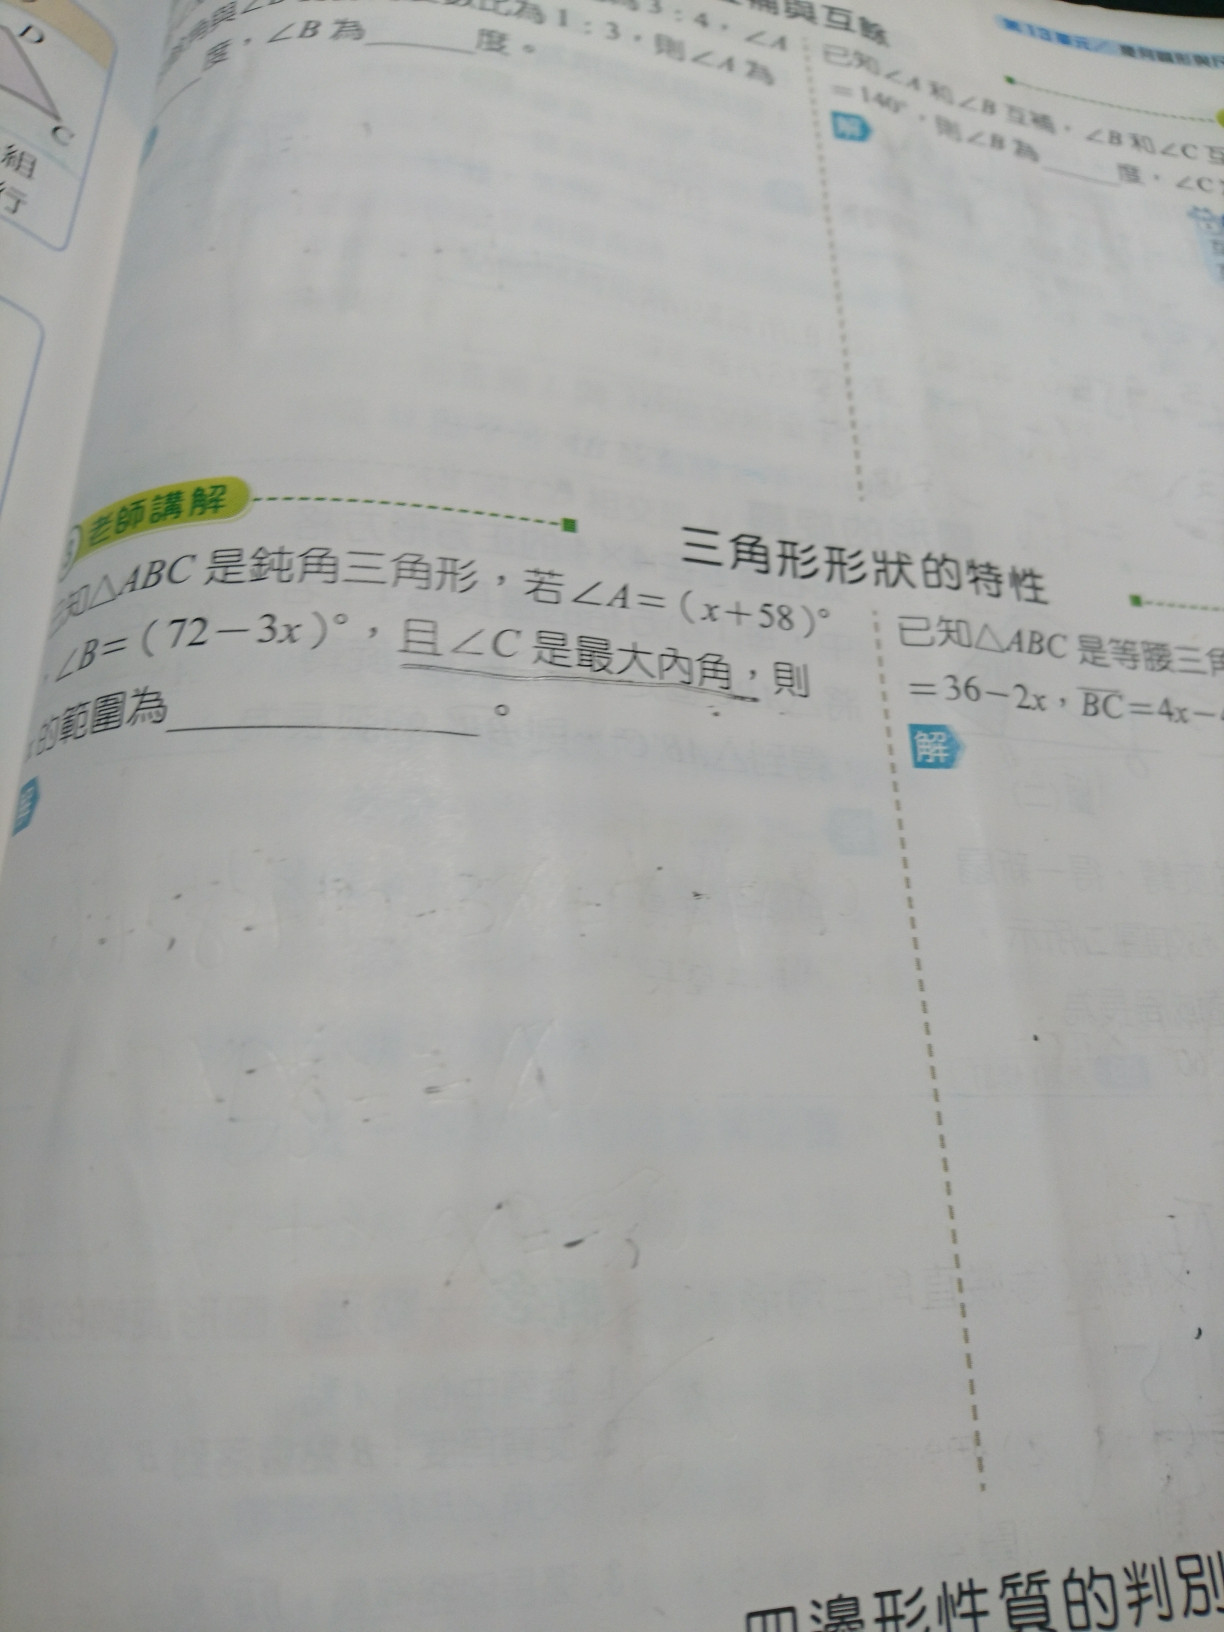 D
C
組
行
互補與互餘
3：4，∠A
數比為1：3，則∠A為
度，∠B為______度。
已知∠A和∠B互補，∠B和∠C互
=140°，則∠B為______度，∠C
解
老師講解
三角形形狀的特性
已知△ABC是鈍角三角形，若∠A=（x+58）°
，∠B=（72－3x）°，且∠C是最大內角，則
x的範圍為____________。
解
已知△ABC是等腰三角
=36－2x，BC=4x－
解
四邊形性質的判別